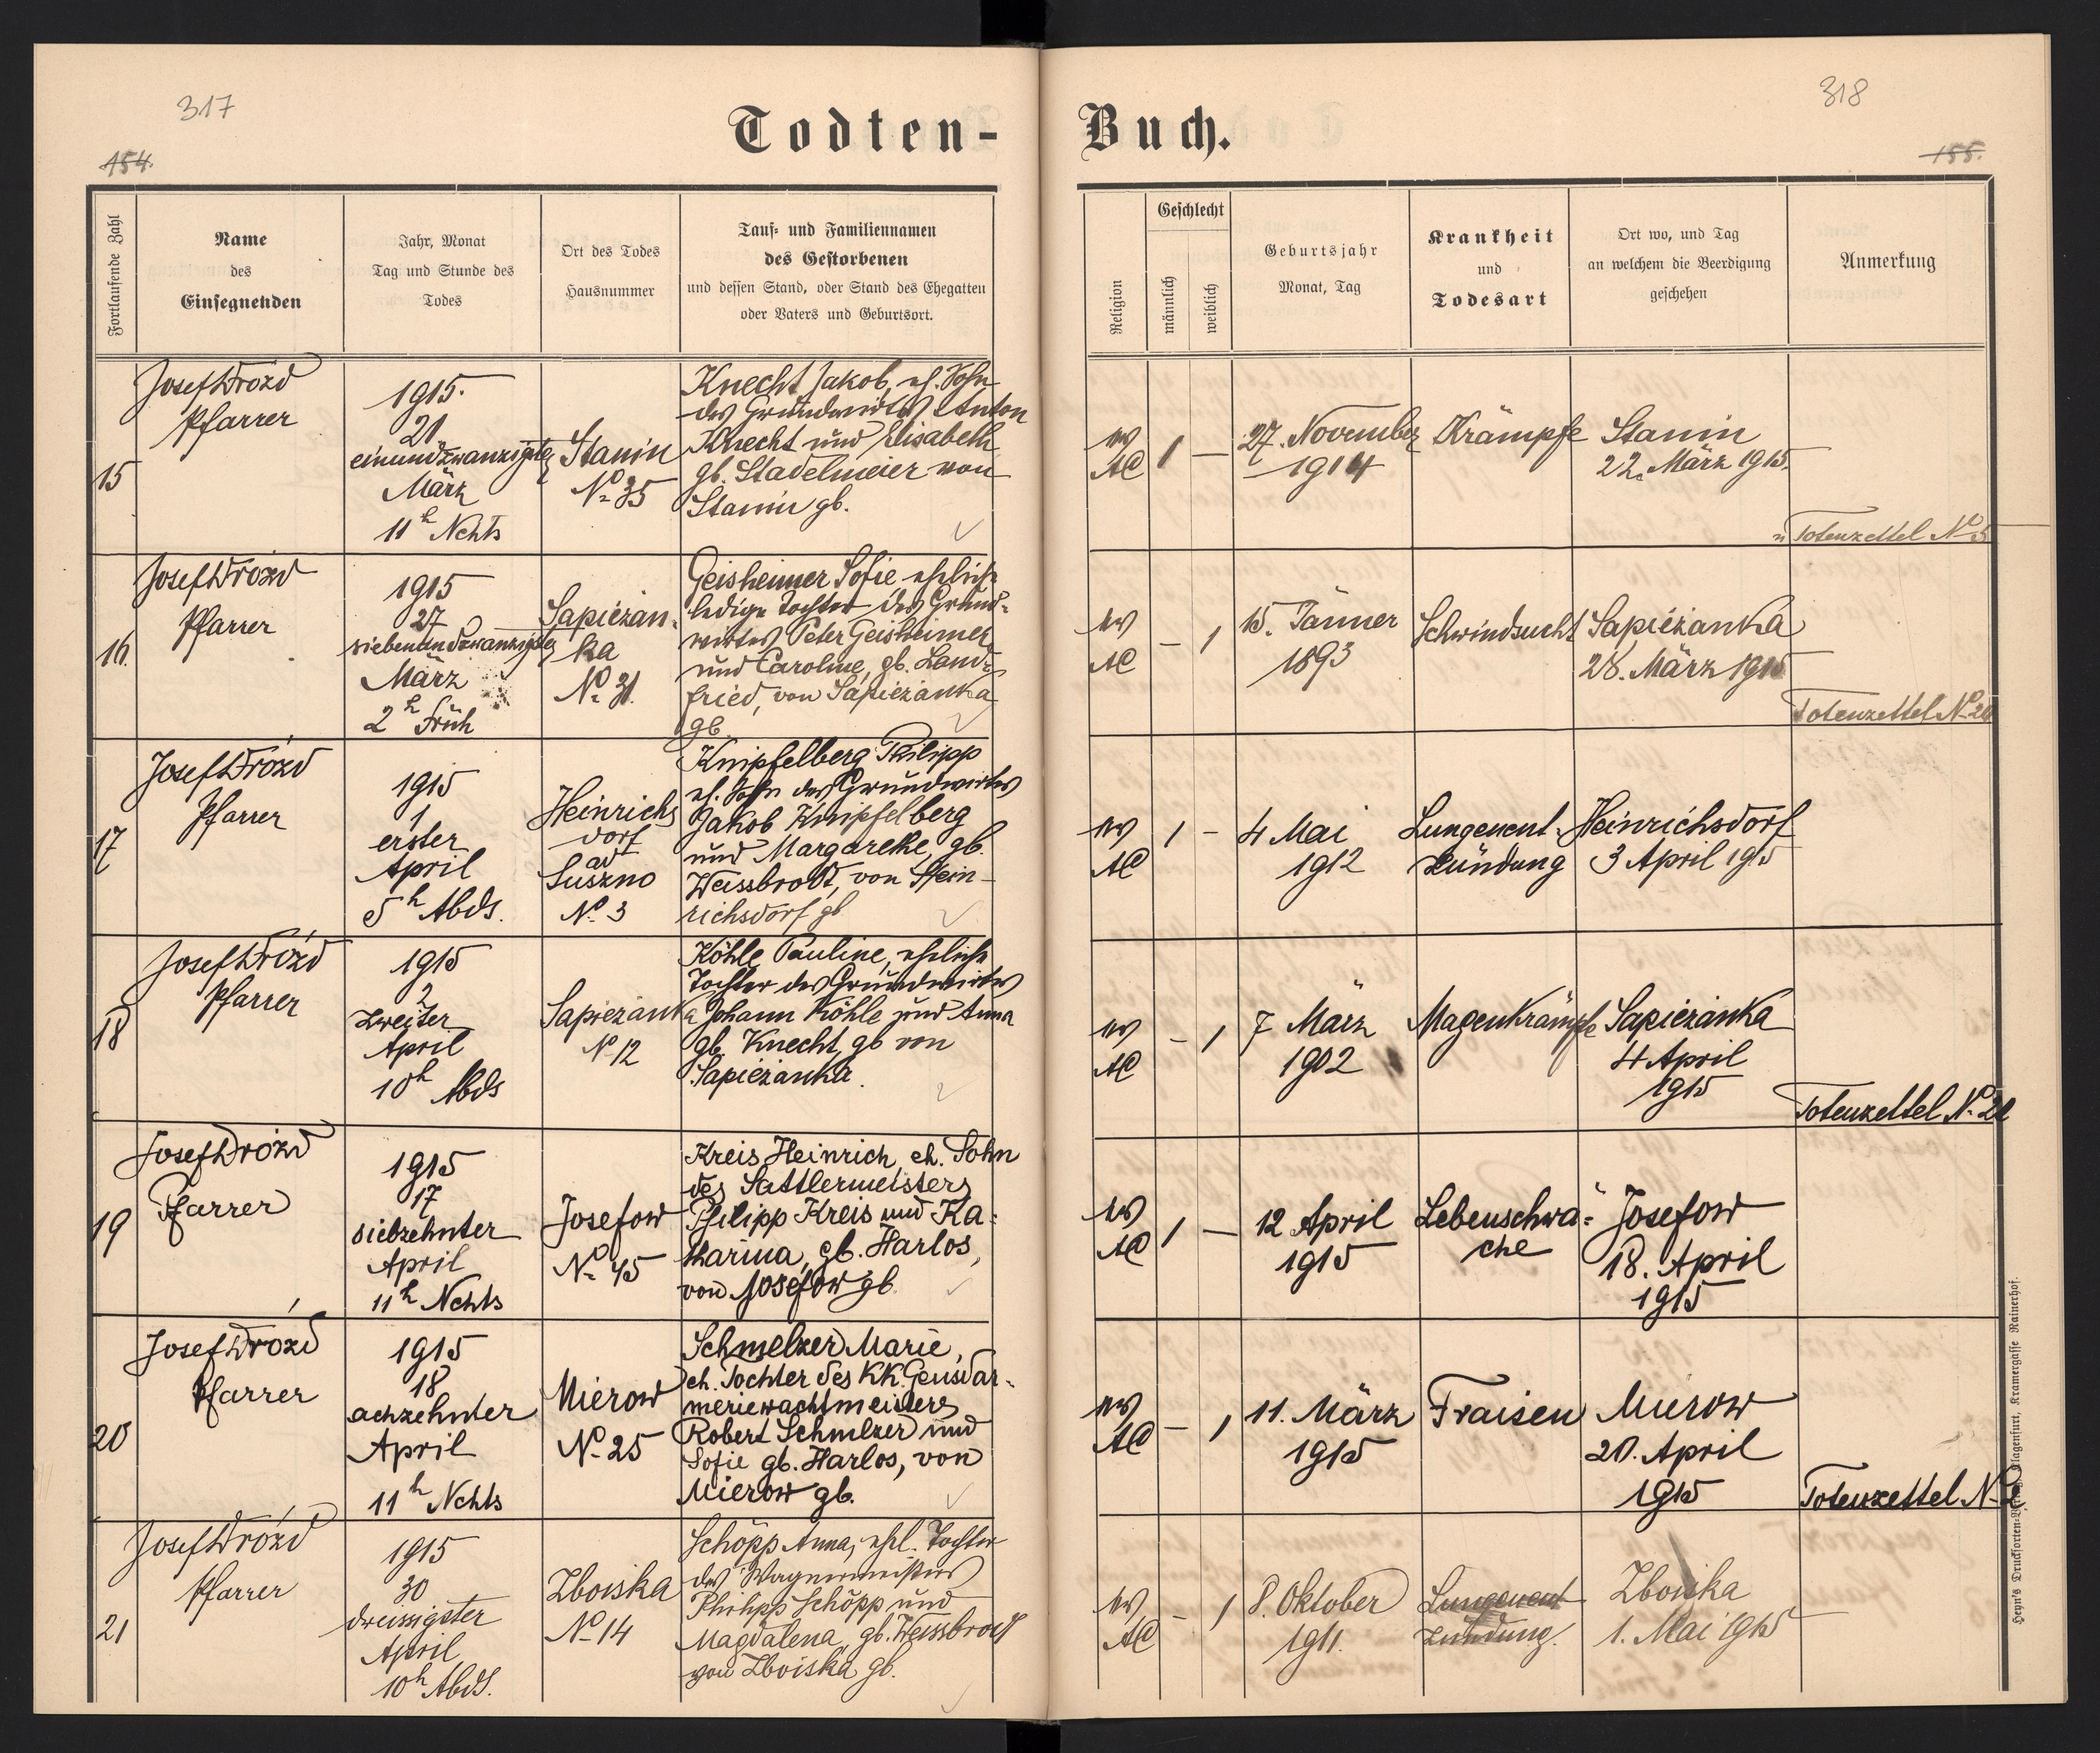 317
318
154.
155.
Todten-
Buch.
Fortlaufende Zahl
Name
des
Einsegnenden
Jahr, Monat
Tag und Stunde des
Todes
Ort des Todes
Hausnummer
Tauf- und Familiennamen
des Gestorbenen
und dessen Stand, oder Stand des Ehegatten
oder Vaters und Geburtsort.
Religion
Geschlecht
männlich
weiblich
Geburtsjahr
Monat, Tag
Krankheit
und
Todesart
Ort wo, und Tag
an welchem die Beerdigung
geschehen
Anmerkung
15
Josef Drozd
Pfarrer
1915.
21
einundzwanzigster
März
11h Nchts
Stanin
No 35
Knecht Jakob, eh. Sohn
des Grundwirtes Anton
Knecht und Elisabeth
gb. Stadelmeier von
Stanin gb.
ev
AC
1
—
27. November
1914
Krämpfe
Stanin
22. März 1915.
Totenzettel No 5
16.
Josef Drozd
Pfarrer
1915
27
siebenundzwanzigster
März
2h Früh
Sapieżan-
ka
No 31.
Geisheimer Sofie eheliche
ledige Tochter des Grund-
wirtes Peter Geisheimer
und Caroline, gb. Land-
fried, von Sapieżanka
gb.
ev
AC
–
1
15. Jänner
1893
Schwindsucht
Sapieżanka
28. März 1915
Totenzettel No 20
17
Josef Drozd
Pfarrer
1915
1
erster
April
5h Abds.
Heinrichs
dorf
ad
Suszno
No 3
Knipfelberg Philipp
eh. Sohn des Grundwirtes
Jakob Knipfelberg
und Margarethe, gb.
Weissbrodt, von Hein-
richsdorf gb
ev
AC
1
–
4 Mai
1912
Lungenent-
zündung
Heinrichsdorf
3 April 1915
18
Josef Drozd
Pfarrer
1915
2
zweiter
April
10h Abds
Sapieżanka
No 12
Köhle Pauline, eheliche
Tochter des Grundwirtes
Johann Köhle und Anna
gb. Knecht, gb von
Sapieżanka.
ev
AC
–
1
7 März
1902
Magenkrämpfe
Sapieżanka
4 April
1915
Totenzettel No 21
19
Josef Drozd
Pfarrer
1915
17
siebzehnter
April
11h Nchts
Josefow
No 45
Kreis Heinrich, eh. Sohn
des Sattlermeisters
Philipp Kreis und Ka-
tharina, gb. Harlos,
von Josefow gb.
ev
AC
1
—
12 April
1915
Lebenschwä-
che
Josefow
18. April
1915
20
Josef Drozd
Pfarrer
1915
18
achzehnter
April
11h Nchts
Mierow
No 25
Schmelzer Marie,
eh. Tochter des KK. Gensdar-
meriewachtmeisters
Robert Schmelzer und
Sofie gb. Harlos, von
Mierow gb.
ev
AC
–
1
11. März
1915
Fraisen
Mierow
20. April
1915
Totenzettel No
21
Josef Drozd
Pfarrer
1915
30
dreissigster
April
10h Abds.
Zboiska
No 14
Schöpp Anna, ehel. Tochter
des Wagnermeisters
Philipp Schöpp und
Magdalena, gb. Weissbrodt
von Zboiska gb.
ev
AC
–
1
8. Oktober
1911.
Lungenent
zündung.
Zboiska
1. Mai 1915
Heyn's Drucksorten-Verlag, Klagenfurt, Kramergasse Rainerhof.